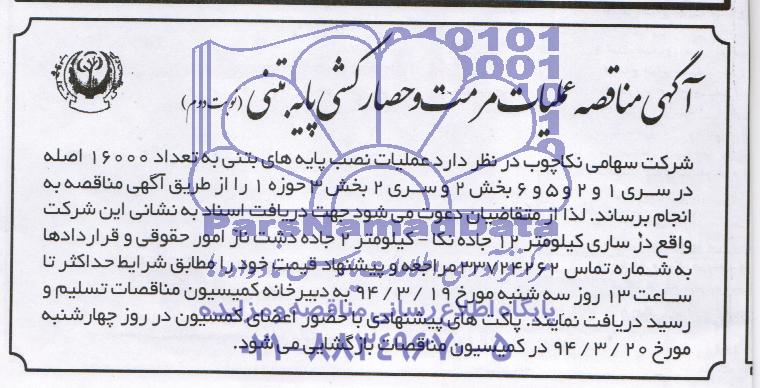 آگهی مناقصه عملیات مرمت و حصارکشی پایه بتنی (نوبت دوم)
شرکت سهامی نکاچوب در نظر دارد عملیات نصب پایه های بتنی به تعداد ۱۶۰۰۰ اصله
در سری ۱ و ۲ و ۵ و ۶ بخش ۲ و سری ۲ بخش ۳ حوزه ۱ را از طریق آگهی مناقصه به
انجام برساند. لذا از متقاضیان دعوت می شود جهت دریافت اسناد به نشانی این شرکت
واقع در ساری کیلومتر ۱۲ جاده نکا - کیلومتر ۲ جاده دشت ناز امور حقوقی و قراردادها
به شماره تماس ۳۳۷۲۴۲۶۲ مراجعه و پیشنهاد قیمت خود را مطابق شرایط حداکثر تا
ساعت ۱۳ روز سه شنبه مورخ ۹۴/۳/۱۹ به دبیرخانه کمیسیون مناقصات تسلیم و
رسید دریافت نمایند. پاکت های پیشنهادی با حضور اعضای کمسیون در روز چهارشنبه
مورخ ۹۴/۳/۲۰ در کمیسیون مناقصات بازگشایی می شود.
ParsNamadData
پایگاه اطلاع رسانی مناقصه و مزایده
۰۲۱-۸۸۳۴۹۶۷۰-۵